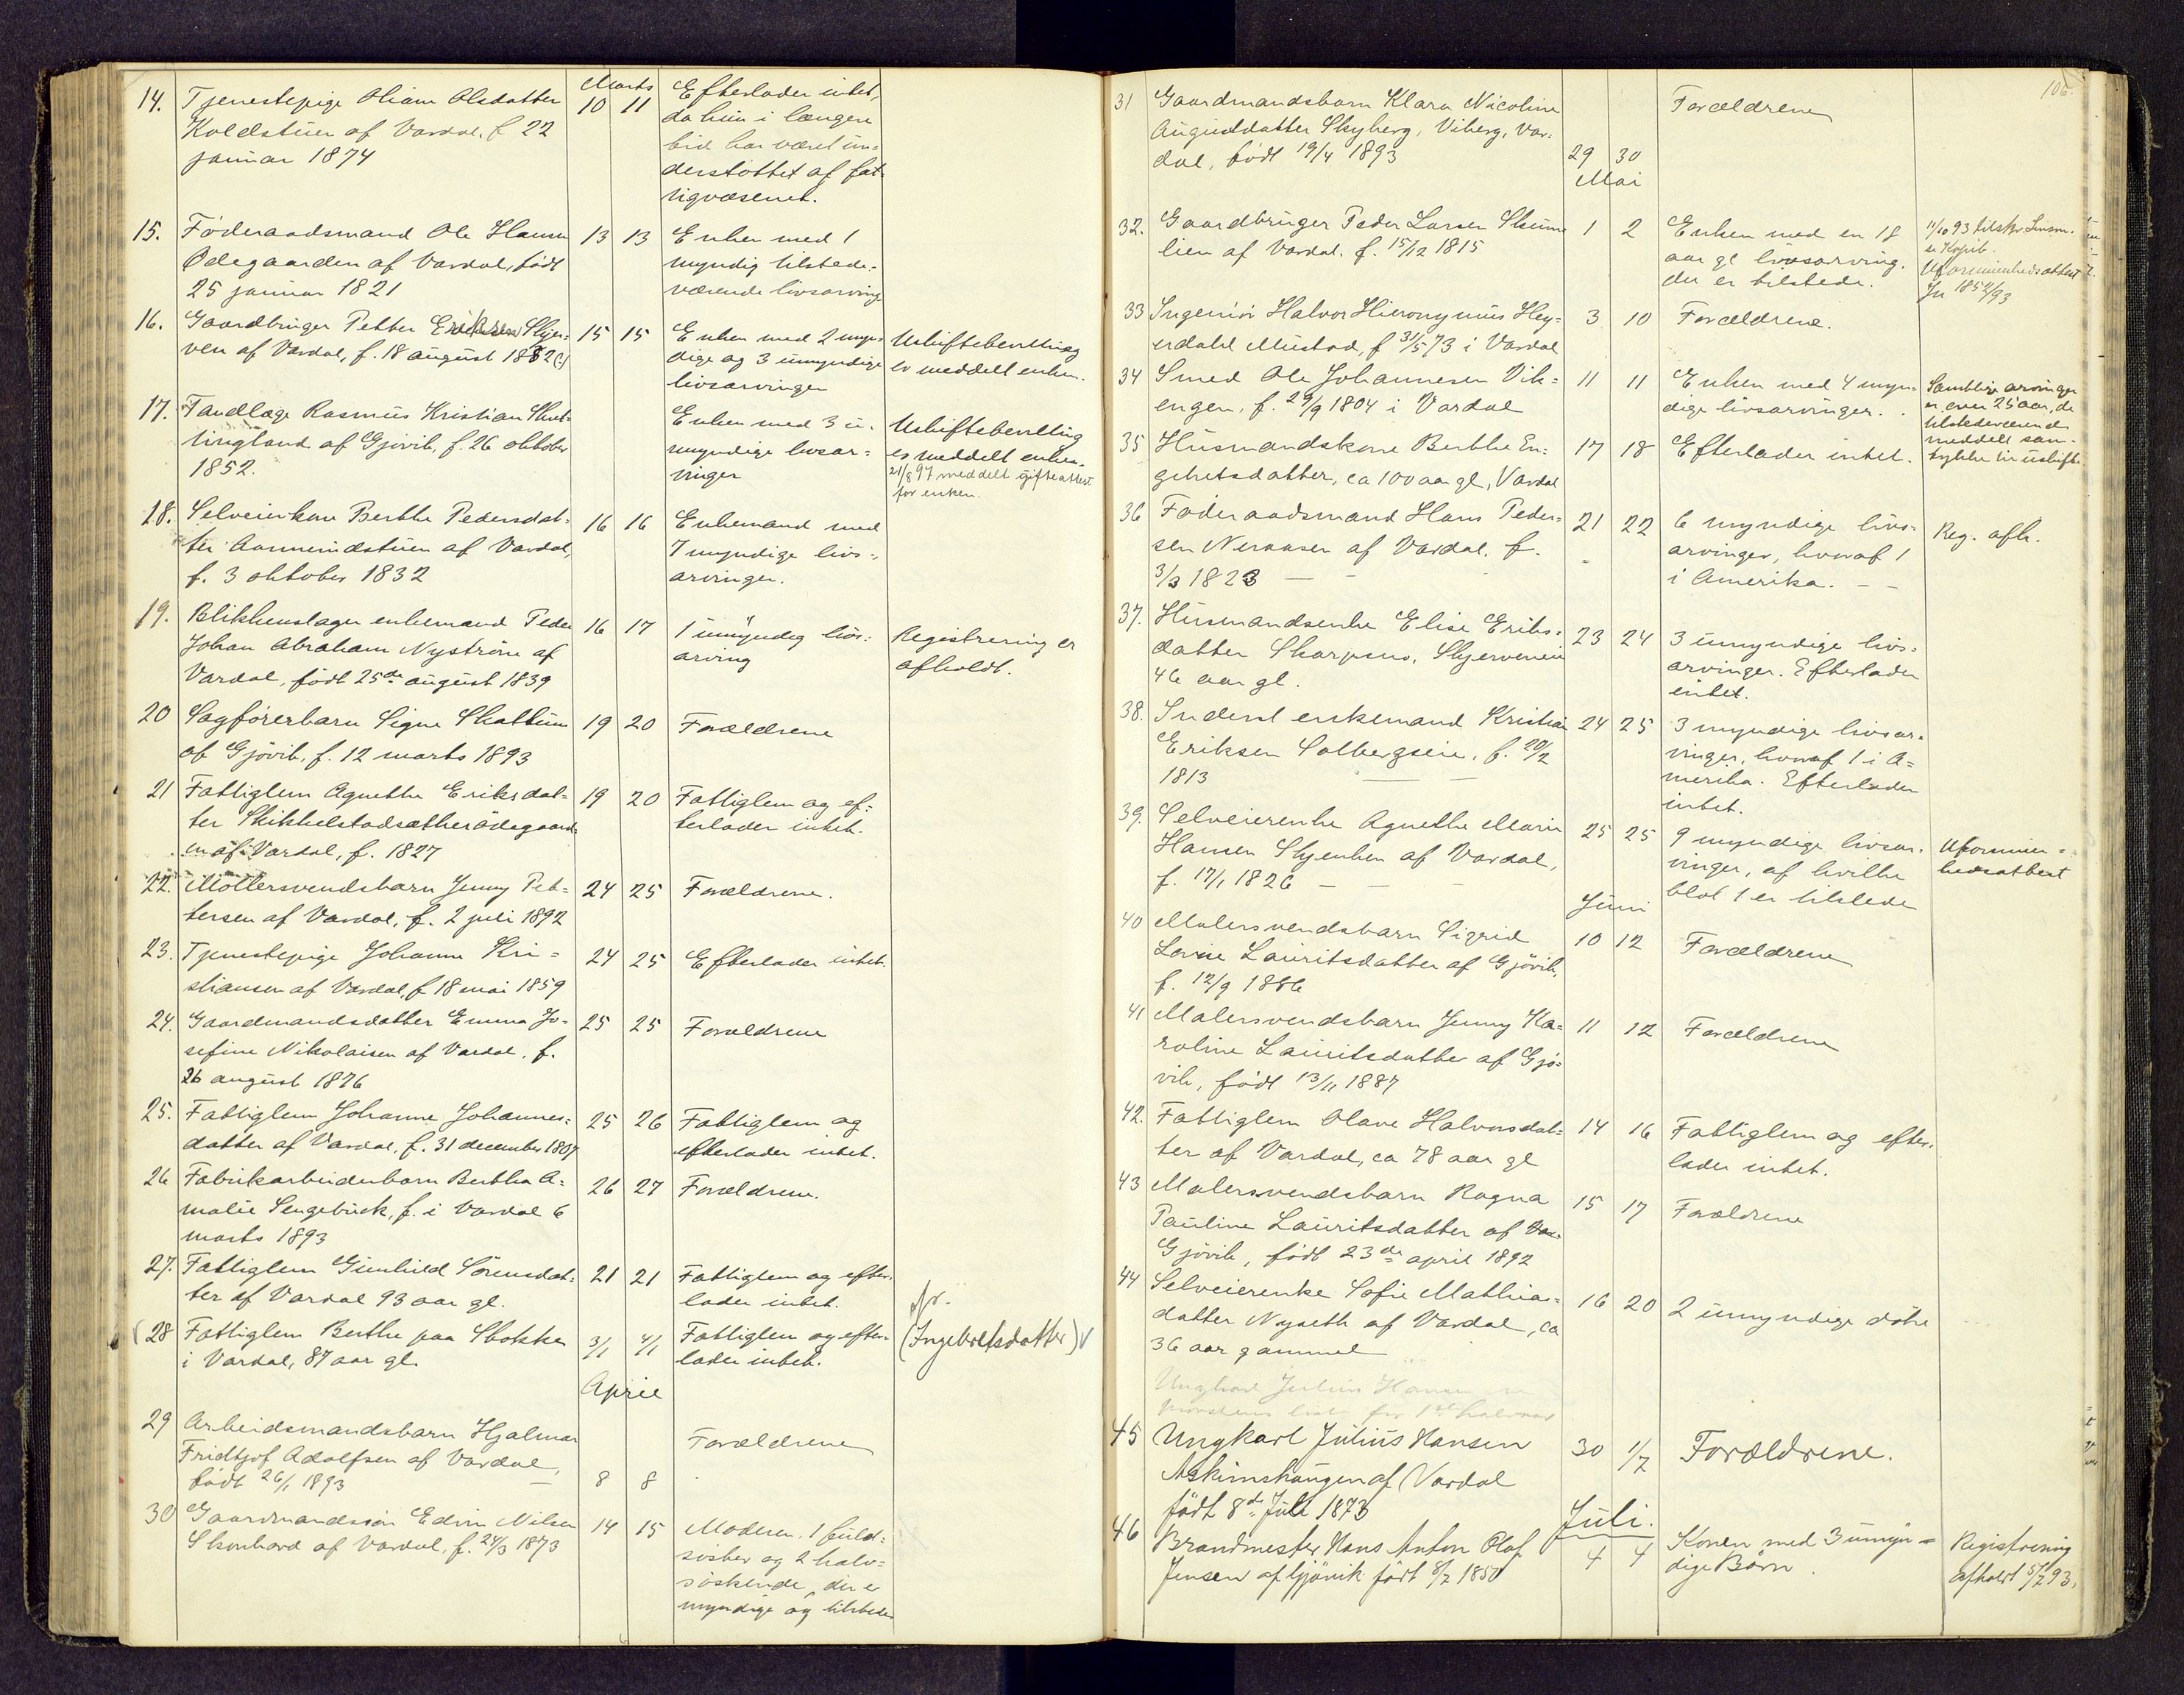 Marts
14. Tjenestepige Oliane Olsdatter 10 11 Efterlader intet,
Koldstuen af Vardal, f. 22 da hun i længere
januar 1874 tid har været un=
derstøttet af fat=
tigvæsenet.
15. Føderaadsmand Ole Hansen 13 13 Enken med 1
Ødegaarden af Vardal, født myndig tilstede=
25 januar 1821 værende livsarving
16. Gaardbruger Petter Eriksen Skjer= 15 15 Enken med 2 myn= Uskiftebevilling
ven af Vardal, f. 18 august 1832 dige og 3 umyndige er meddelt enken.
livsarvinger
17. Tandlæge Rasmus Kristian Skut= Enken med 3 u= Uskiftebevilling
lingland af Gjövik, f. 26 oktober myndige livsar= er meddelt enken.
1852. vinger 21/8 97 meddelt gifteattest
for enken.
18. Selveierkone Berthe Pedersdat= 16 16 Enkemand med
ter Aannerudstuen af Vardal, 7 myndige livs=
f. 3 oktober 1832 arvinger.
19. Blikkenslager enkemand Peder 16 17 1 umyndig livs= Registrering er
Johan Abraham Nyström af arving afholdt.
Vardal, født 25de august 1839
20 Sagförerbarn Signe Skattum 19 20 Forældrene
af Gjövik, f. 12 marts 1893
21 Fattiglem Agnethe Eriksdat= 19 20 Fattiglem og ef=
ter Stikkelstadsætherödegaard= terlader intet.
en af Vardal, f. 1827
22. Møllersvendsbarn Jenny Pet= 24 25 Forældrene.
tersen af Vardal, f. 2 juli 1892
23. Tjenestepige Johanne Kri= 24 25 Efterlader intet.
stiansen af Vardal, f 18 mai 1859
24. Gaardmandsdatter Emma Jo= 25 25 Forældrene
sefine Nikolaisen af Vardal, f.
26 august 1876
25. Fattiglem Johanne Johannes= 25 26 Fattiglem og
datter af Vardal, f. 31 december 1807 efterlader intet.
26 Fabrikarbeiderbarn Bertha A= 26 27 Forældrene.
malie Sengebuck, f. i Vardal 6
marts 1893
27. Fattiglem Gunhild Sörensdat= 21 21 Fattiglem og efter=
ter af Vardal 93 aar gl. lader intet.
28 Fattiglem Berthe paa Stokke 3/1 4/1 Fattiglem og efter= (Ingebretsdatter) v
i Vardal, 87 aar gl. lader intet.
April
29 Arbeidsmandsbarn Hjalmar Forældrene
Fridtjof Adolfsen af Vardal,
født 26/1 1893 8 8
30 Gaardmandssön Edvin Nilsen 14 15 Moderen, 1 huld=
Skonhard af Vardal, f. 24/3 1873 söster og 2 halv=
söskende, der er
myndige og tilstede
106.
31 Gaardmandsbarn Klara Nicoline Forældrene
Augustdatter Skyberg, Viberg, Var=
dal, født 19/4 1893 29 30
Mai
32. Gaardbruger Peder Larsen Skum 1 2 Enken med en 18 11/10 93 tilskr. Lensm.
lien af Vardal, f. 15/12 1815 aar gl livsarving, se Kopib.
der er tilstede. Uformuenhedsattest
Jn 1852/93
33 Ingeniör Halvor Hieronymus Hey= 3 10 Forældrene.
erdahl Mustad, f 31/5 73 i Vardal
34 Smed Ole Johannesen Vik= 11 11 Enken med 4 myn= Samtlige arvinger
engen, f. 29/9 1804 i Vardal dige livsarvinger. er over 25 aar, de
tilstedeværende
meddelt sam=
tykke til uskifte
35 Husmandskone Berthe En= 17 18 Efterlader intet.
gebretsdatter, ca 100 aar gl, Vardal
36 Føderaadsmand Hans Peder= 21 22 6 myndige livs= Reg. afh.
sen Neraasen af Vardal, f. arvinger, hvoraf 1
3/3 1823 i Amerika.
37. Husmandsenke Elise Eriks= 23 24 3 umyndige livs=
datter Skarpsno, Skjerveneie arvinger. Efterlader
46 aar gl. intet.
38. Inderst enkemand Kristian 24 25 3 myndige livsar=
Eriksen Solbergseie, f. 20/2 vinger, hvoraf 1 i A=
1813 merika. Efterlader
intet.
39. Selveierenke Agnethe Marie 25 25 9 myndige livsar= Uformuen=
Hansen Skjenken af Vardal, vinger, af hvilke hedsattest
f. 17/1 1826 blot 1 er tilstede
Juni
40 Malersvendsbarn Sigrid 10 12 Forældrene
Lovise Lauritsdatter af Gjövik,
f. 12/9 1886
41 Malersvendsbarn Jenny Ka= 11 12 Forældrene
roline Lauritsdatter af Gjö=
vik, født 13/11 1887
42. Fattiglem Olave Halvorsdat= 14 16 Fattiglem og efter=
ter af Vardal, ca 78 aar gl lader intet.
43 Malersvendsbarn Ragna 15 17 Forældrene
Pauline Lauritsdatter af Var
Gjövik, født 23de april 1892
44 Selveierenke Sofie Mathias= 16 20 2 umyndige dötre
datter Nyseth af Vardal, ca
36 aar gammel
Ungkarl Julius Hansen
45 Ungkarl Julius Hansen 30 1/7 Forældrene.
Askimshaugen af Vardal
født 8de Juli 1873
Juli.
46 Brandmester Hans Anton Olaf 4 4 Konen med 3 umyn= Registrering
Jensen af Gjövik født 8/7 1850 dige Börn. afholdt 5/7 93.